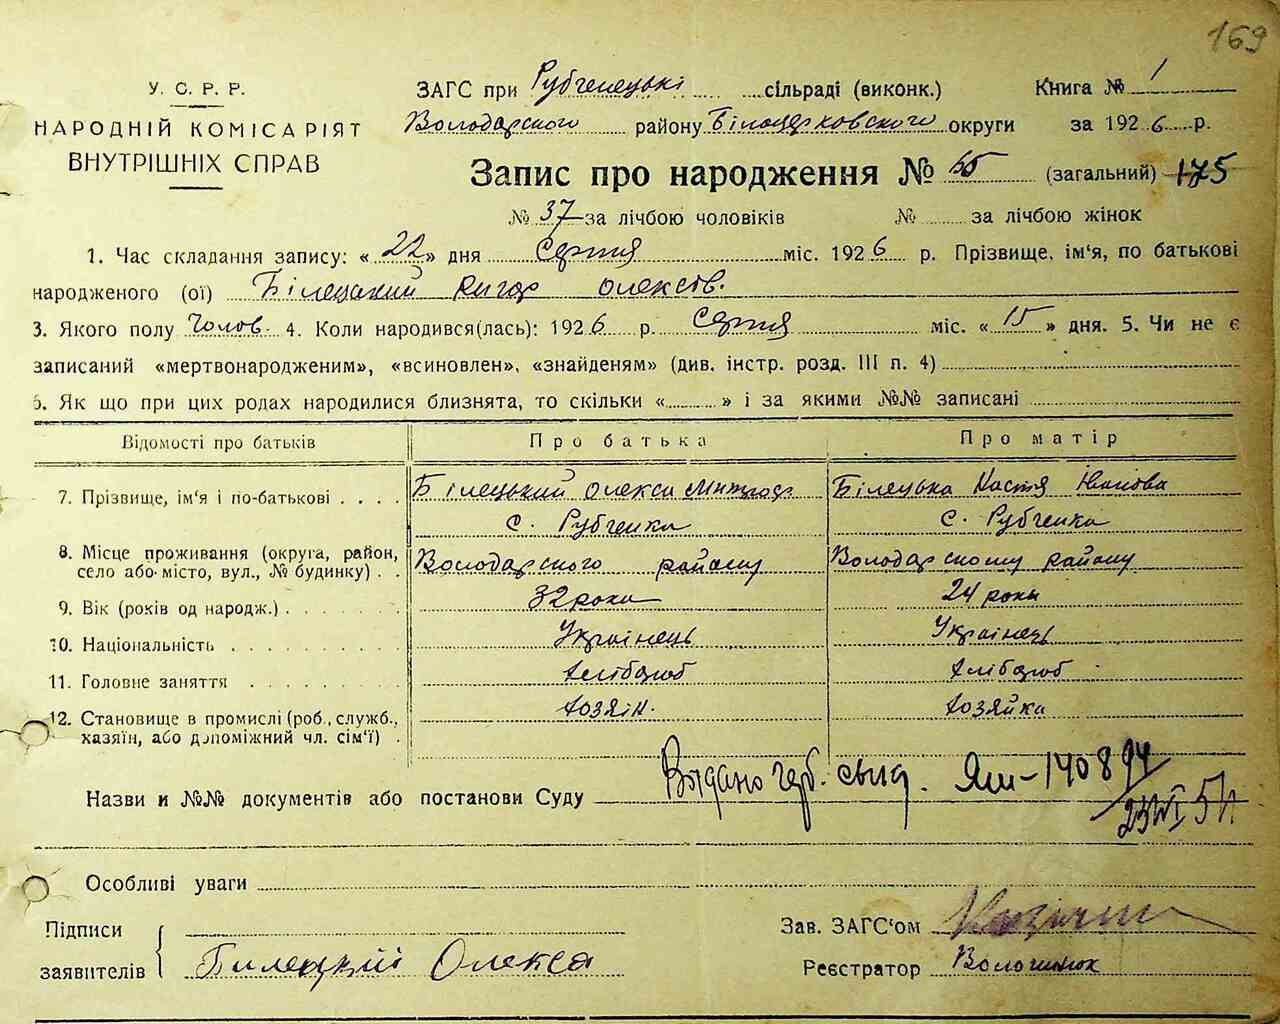 169
У. С. Р. Р.
НАРОДНІЙ КОМІСАРІЯТ
ВНУТРІШНІХ СПРАВ
ЗАГС при Рубченецькі сільраді (виконк.) Книга № 1
Володарського району Білоцерковського округи за 1926 р.
Запис про народження № 55 (загальний) 175
№ 37 за лічбою чоловіків № за лічбою жінок
1. Час складання запису: « 22 » дня Серпня міс. 1926 р. Прізвище, ім'я, по батькові
народженого (ої) Білецький Олексів.
3. Якого полу Чолов. 4. Коли народився(лась): 1926 р. Серпня міс. « 15 » дня. 5. Чи не є
записаний «мертвонародженим», «всиновлен», «знайденям» (див. інстр. розд. III п. 4)
6. Як що при цих родах народилися близнята, то скільки « » і за якими №№ записані
Відомості про батьків Про батька Про матір
7. Прізвище, ім'я і по-батькові Білецький Олекса Митроф Білецька Настя Іванова
с. Рубченка с. Рубченка
8. Місце проживання (округа, район, село або місто, вул., № будинку) Володарського району Володарському району
9. Вік (років од народж.) 32 роки 24 роки
10. Національність Українець Українець
11. Головне заняття Хлібороб Хлібороб
12. Становище в промислі (роб., служб., хазяїн, або допоміжний чл. сім'ї) Хозяін. Хозяйка
Назви и №№ документів або постанови Суду Видано свид. 140894
Особливі уваги
Підписи
заявителів Билецкий Олекса
Зав. ЗАГС'ом
Реєстратор